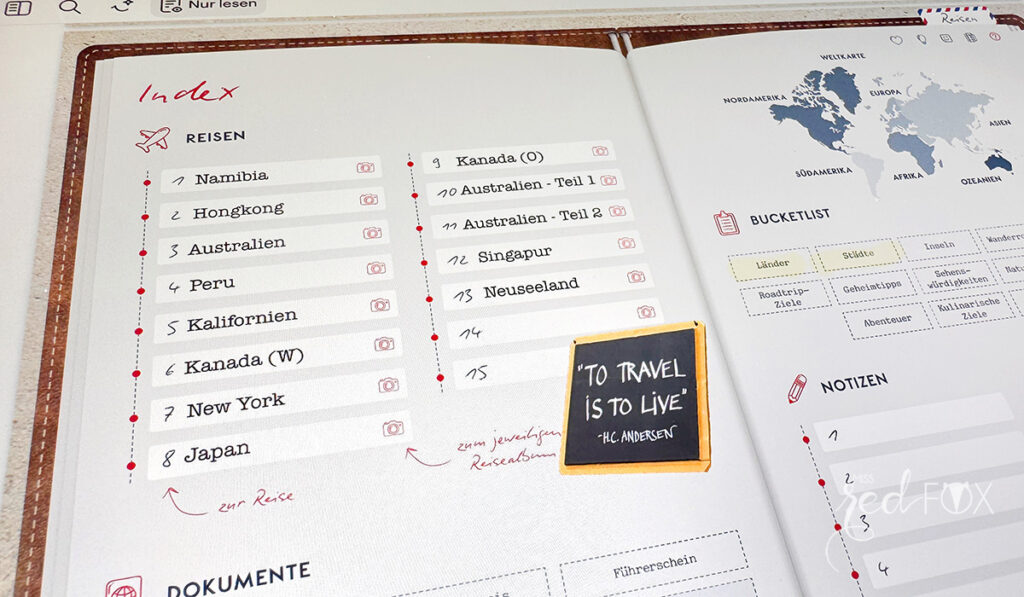 Nur lesen
Reisen
Index
REISEN
1 Namibia
2 Hongkong
3 Australien
4 Peru
5 Kalifornien
6 Kanada (W)
7 New York
8 Japan
zur Reise
9 Kanada (O)
10 Australien - Teil 1
11 Australien - Teil 2
12 Singapur
13 Neuseeland
14
15
zum jeweiligen
Reisealbum
"TO TRAVEL
IS TO LIVE"
-H.C. ANDERSEN
DOKUMENTE
Führerschein
WELTKARTE
NORDAMERIKA
EUROPA
ASIEN
SÜDAMERIKA
AFRIKA
OZEANIEN
BUCKETLIST
Länder
Städte
Inseln
Roadtrip-
Ziele
Geheimtipps
Sehens-
würdigkeiten
Abenteuer
Kulinarische
Ziele
NOTIZEN
1
2
3
4
red FOX